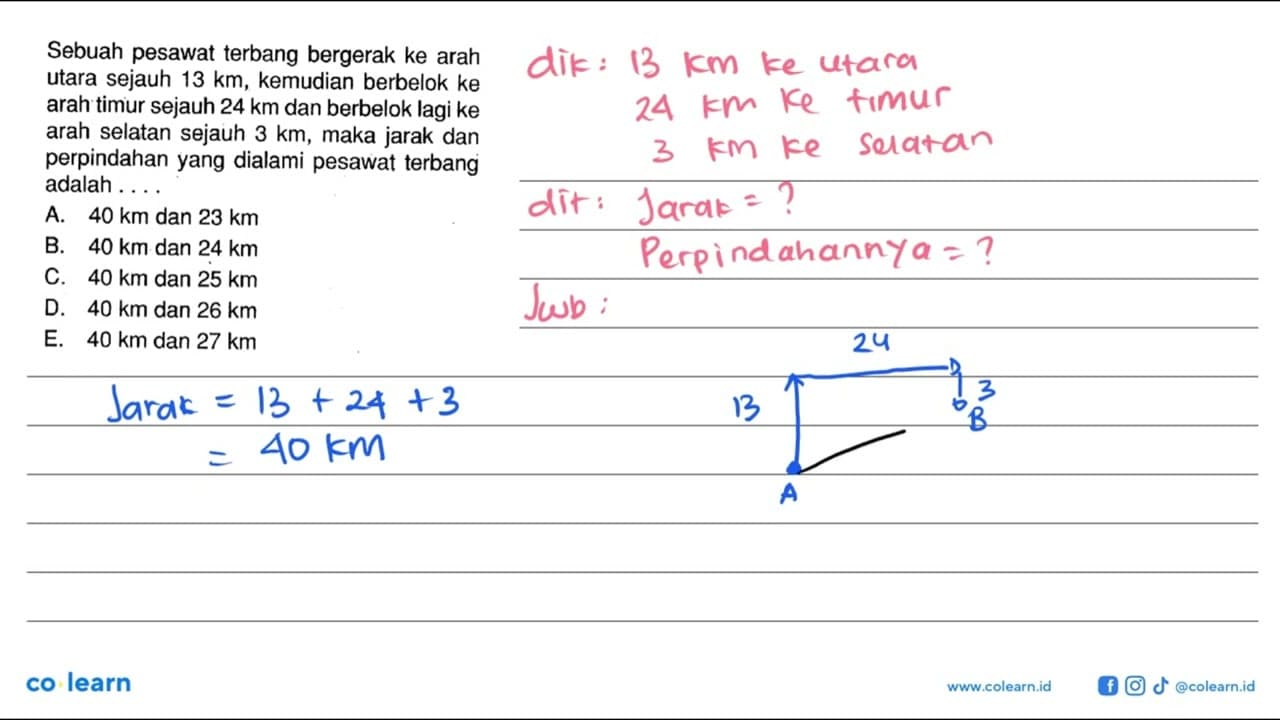 Sebuah pesawat terbang bergerak ke arah
utara sejauh 13 km, kemudian berbelok ke
arah timur sejauh 24 km dan berbelok lagi ke
arah selatan sejauh 3 km, maka jarak dan
perpindahan yang dialami pesawat terbang
adalah . . . .
A. 40 km dan 23 km
B. 40 km dan 24 km
C. 40 km dan 25 km
D. 40 km dan 26 km
E. 40 km dan 27 km
dik : 13 km ke utara
24 km ke timur
3 km ke selatan
dit : Jarak = ?
Perpindahannya = ?
Jwb :
Jarak = 13 + 24 + 3
= 40 KM
24
13
3
B
A
co learn
www.colearn.id
@colearn.id